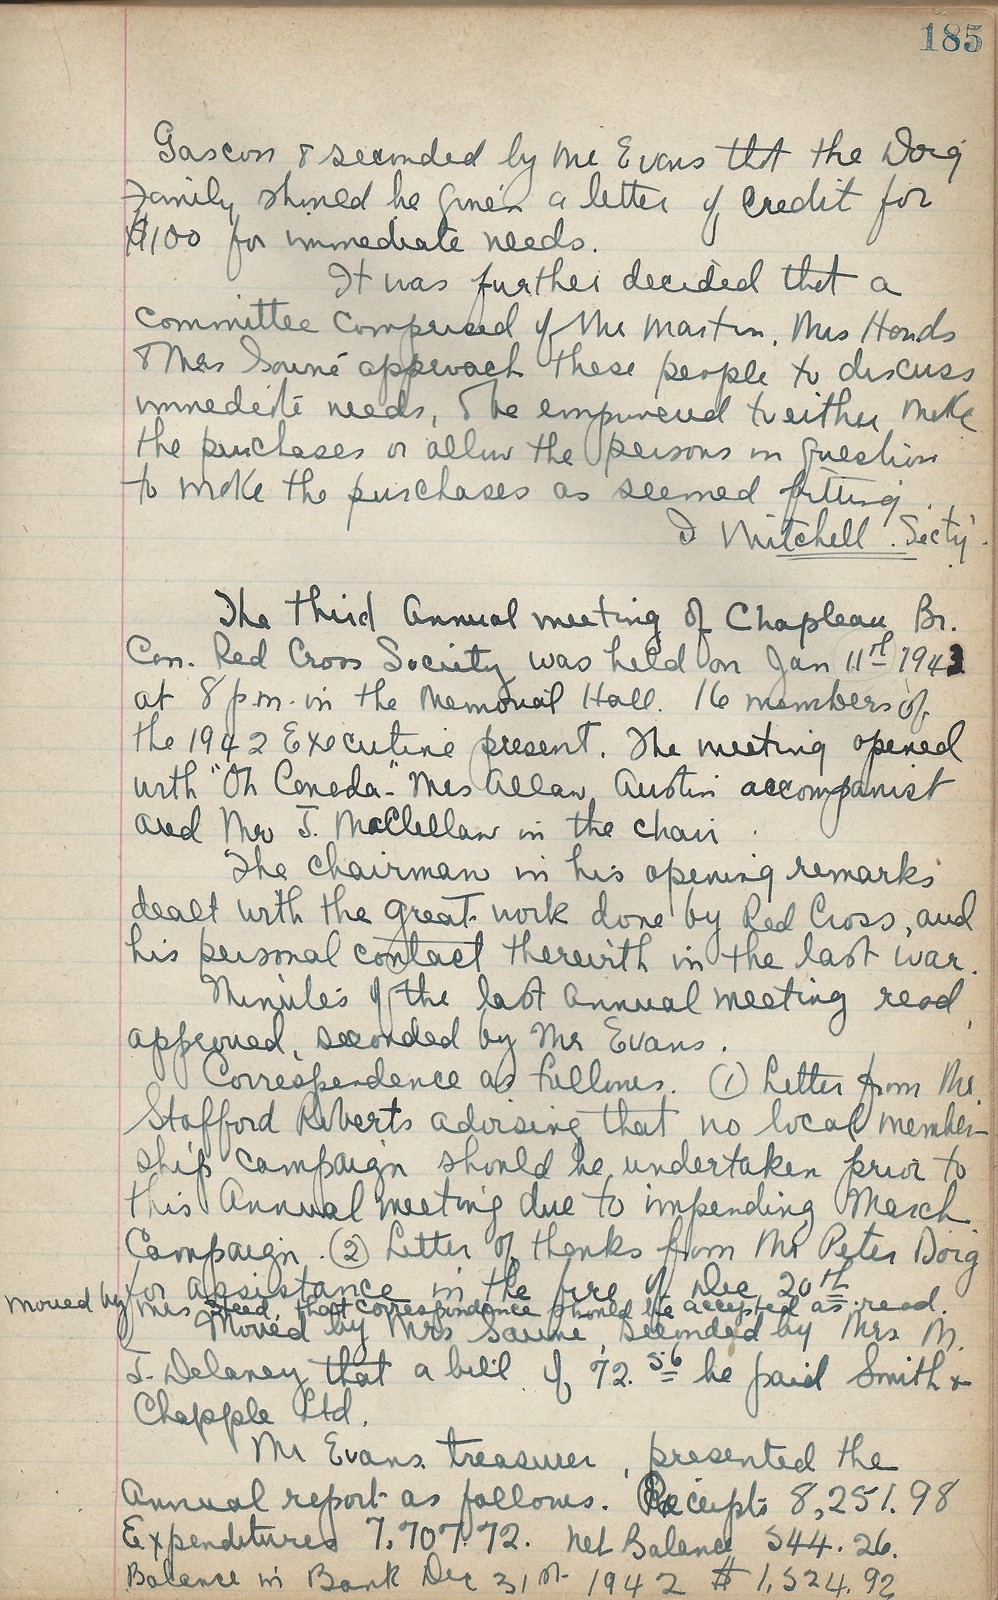 185
Gascon & seconded by Mr Evans that the Doig
Family should be given a letter of credit for
$100 for immediate needs.
It was further decided that a
committee comprised of Mr Martin, Mrs Honds
& Mrs Sauvé approach these people to discuss
immediate needs, & be empowered to either make
the purchases or allow the persons in question
to make the purchases as seemed fitting.
I Mitchell. Secty.
The third Annual meeting of Chapleau Br.
Can. Red Cross Society was held on Jan 11th 1943
at 8 p.m. in the Memorial Hall. 16 members of
the 1942 Executive present. The meeting opened
with "Oh Canada" Mrs Allan Austin accompanist
and Mr J. McClellan in the chair.
The chairman in his opening remarks
dealt with the great work done by Red Cross, and
his personal contact therewith in the last war.
Minutes of the last annual meeting read,
approved, seconded by Mr Evans.
Correspondence as follows. (1) Letter from Mr.
Stafford Roberts advising that no local member-
ship campaign should be undertaken prior to
this Annual meeting due to impending March
Campaign. (2) Letter of thanks from Mr Peter Doig
for assistance in the fire of Dec 20th
moved by Mrs that correspondence should be accepted as read.
Moved by Mrs Sauvé seconded by Mrs M.
J. Delaney that a bill of 72.56 be paid Smith &
Chapple Ltd.
Mr Evans treasurer, presented the
Annual report as follows. Receipts 8,251.98
Expenditures 7,707.72. Net Balance 544.26.
Balance in Bank Dec 31st 1942 $1,524.92